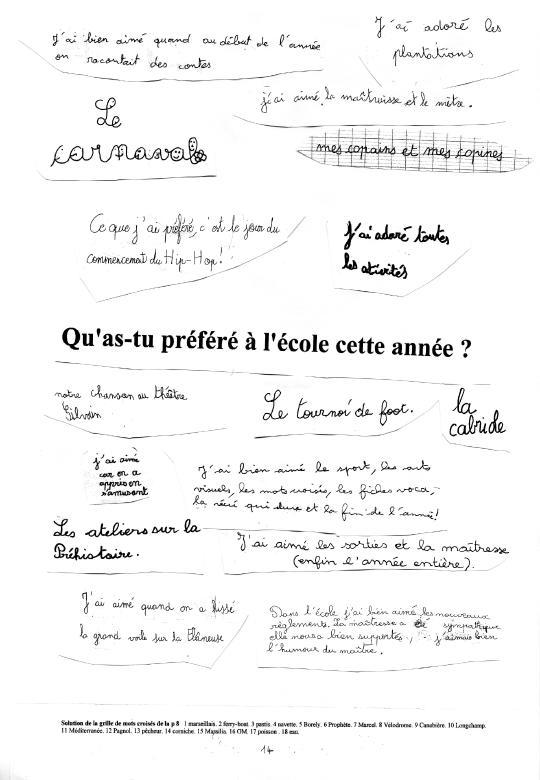 J'ai bien aimé quand au début de l'année
on racontait des contes
J'ai adoré les
plantations
j'ai aimé la maîtruisse et le mètre.
Le
carnaval
mes copains et mes copines
Ce que j'ai préféré, c'est le jour du
commencemat du Hip-Hop!
J'ai adoré toutes
les ativités
Qu'as-tu préféré à l'école cette année ?
notre chanson au théâtre
Silvain
Le tournoi de foot.
la
cabride
j'ai aimé
car on a
appris en
s'amusant
J'ai bien aimé le sport, les arts
visuels, les mots croisés, les fiches voca,
la récré qui dure et la fin de l'année!
Les ateliers sur la
Préhistoire.
J'ai aimé les sorties et la maîtresse
(enfin l'année entière).
J'ai aimé quand on a hissé
la grand voile sur la Flâneuse
Dans l'école j'ai bien aimé les nouveaux
règlements. La maîtresse a été sympathique
elle nous a bien supportés, j'aimais bien
l'humour du maître.
Solution de la grille de mots croisés de la p 8 1 marseillais. 2 ferry-boat. 3 pastis. 4 navette. 5 Borely. 6 Prophète. 7 Marcel. 8 Vélodrome. 9 Canebière. 10 Longchamp.
11 Méditerranée. 12 Pagnol. 13 pêcheur. 14 corniche. 15 Massilia. 16 OM. 17 poisson. 18 eau.
14